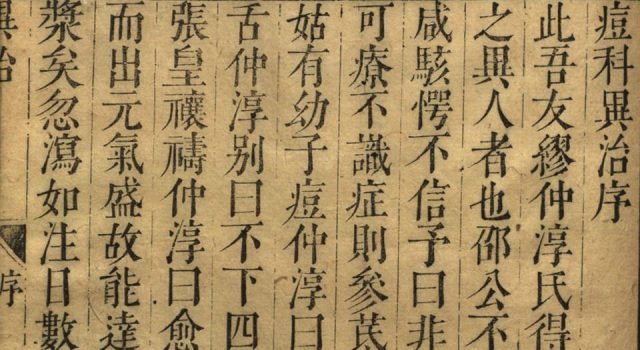 痘科異治序
此吾友繆仲淳氏得
之異人者也邵公不
咸駭愕不信予曰非
可療不識症則參芪
姑有幼子痘仲淳曰
舌仲淳別曰不下四
張皇禳禱仲淳曰愈
而出元氣盛故能達
漿矣忽瀉如注日數
異治
序